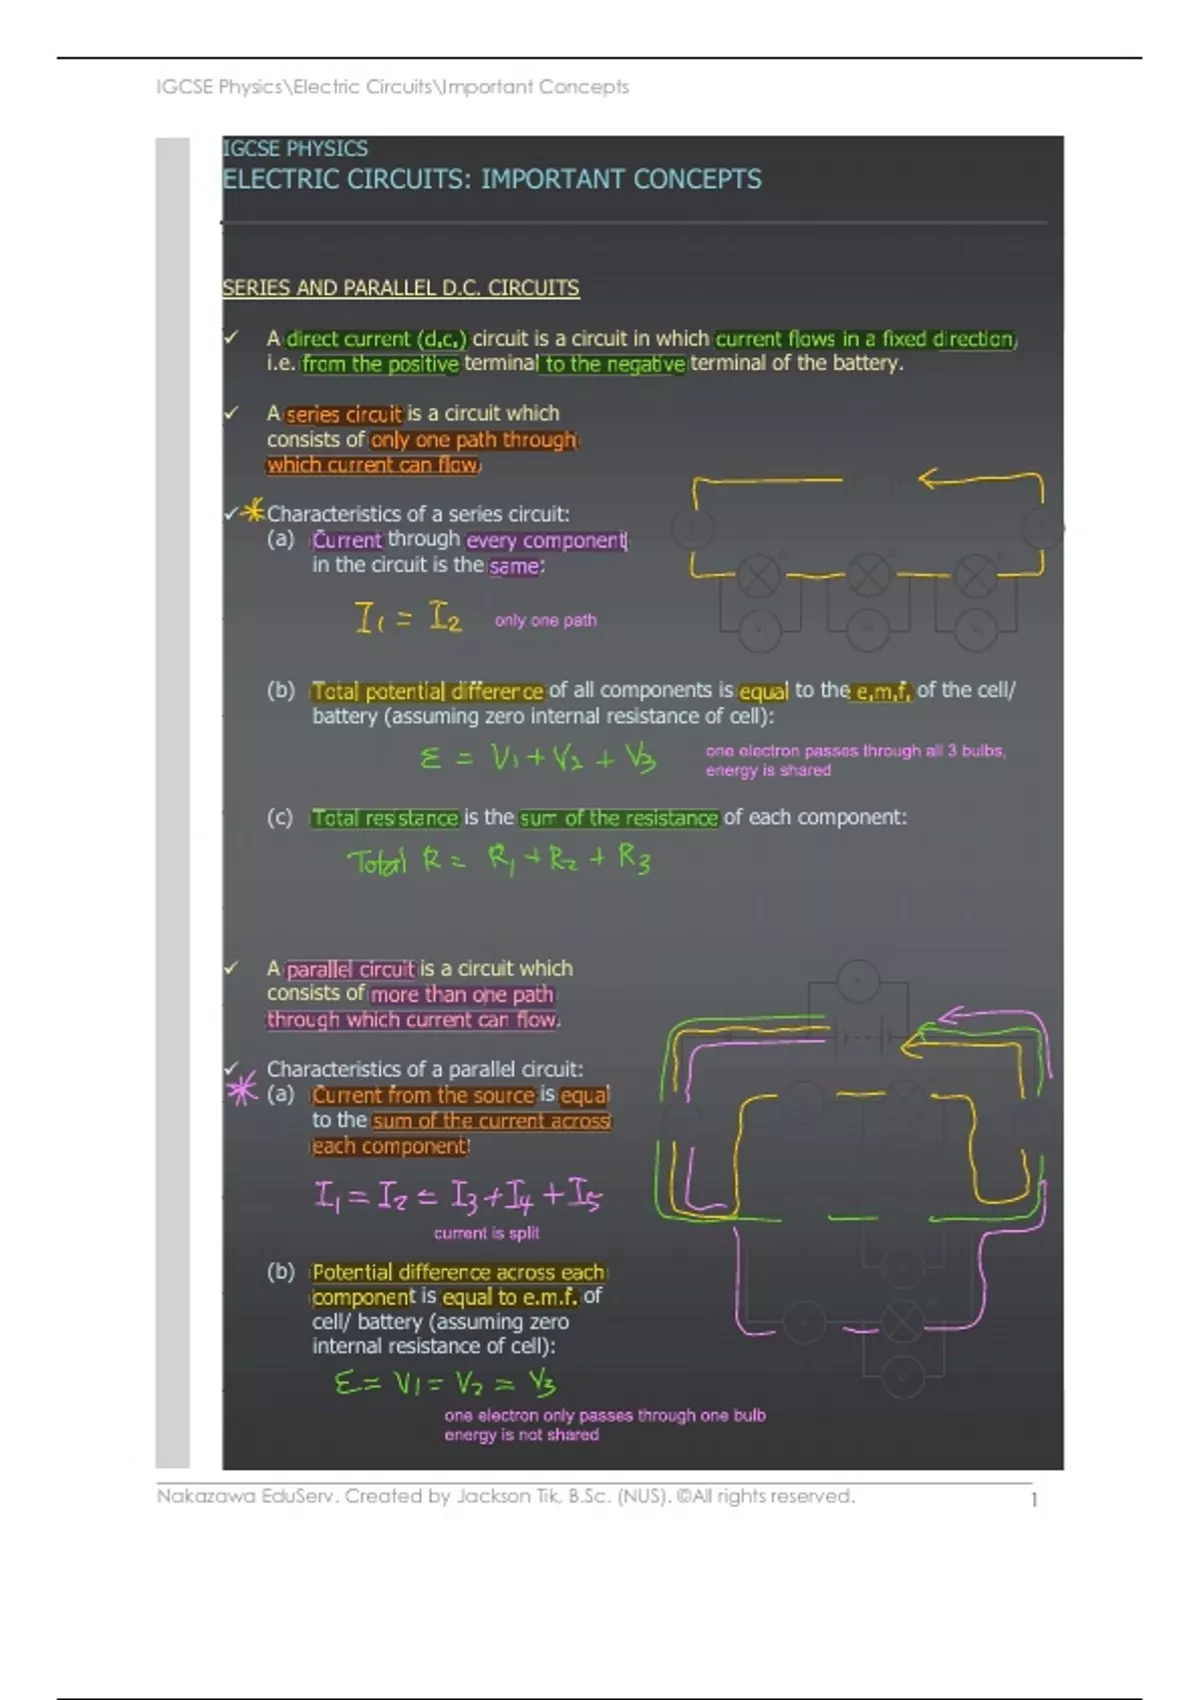 IGCSE Physics\Electric Circuits\Important Concepts
IGCSE PHYSICS
ELECTRIC CIRCUITS: IMPORTANT CONCEPTS
SERIES AND PARALLEL D.C. CIRCUITS
✓ A direct current (d.c.) circuit is a circuit in which current flows in a fixed direction,
i.e. from the positive terminal to the negative terminal of the battery.
✓ A series circuit is a circuit which
consists of only one path through
which current can flow.
✓ * Characteristics of a series circuit:
(a) Current through every component
in the circuit is the same:
I₁ = I₂ only one path
(b) Total potential difference of all components is equal to the e.m.f. of the cell/
battery (assuming zero internal resistance of cell):
ε = V₁ + V₂ + V₃
one electron passes through all 3 bulbs,
energy is shared
(c) Total resistance is the sum of the resistance of each component:
Total R = R₁ + R₂ + R₃
✓ A parallel circuit is a circuit which
consists of more than one path
through which current can flow.
✓ Characteristics of a parallel circuit:
* (a) Current from the source is equal
to the sum of the current across
each component:
I₁ = I₂ = I₃ + I₄ + I₅
current is split
(b) Potential difference across each
component is equal to e.m.f. of
cell/ battery (assuming zero
internal resistance of cell):
ε = V₁ = V₂ = V₃
one electron only passes through one bulb
energy is not shared
Nakazawa EduServ. Created by Jackson Tik, B.Sc. (NUS). ©All rights reserved. 1